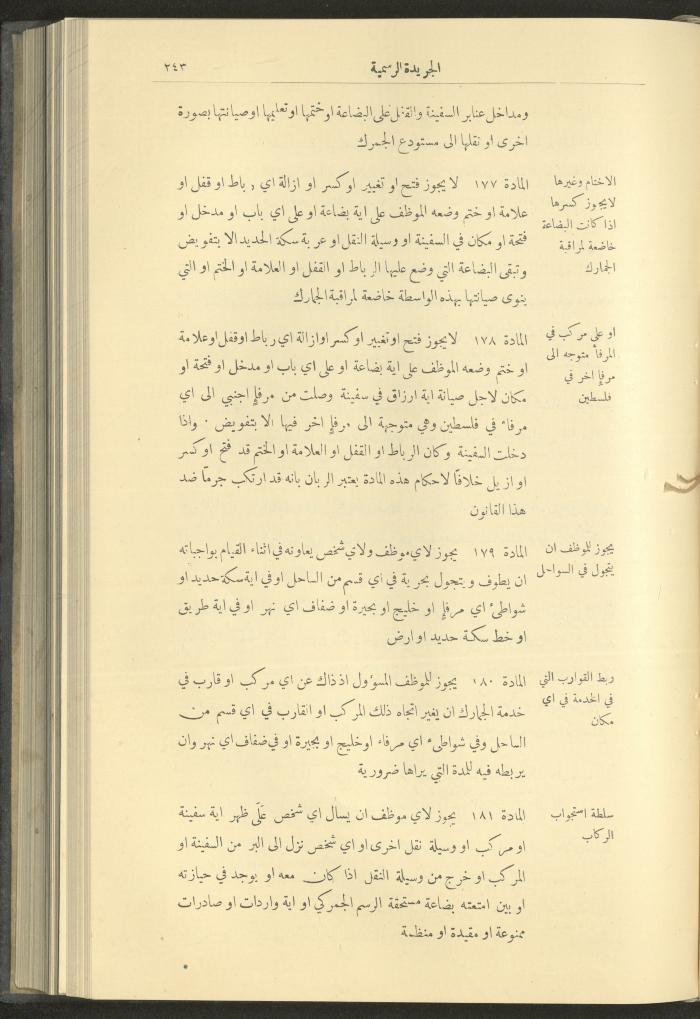 الجريدة الرسمية
٢٤٣
ومداخل عنابر السفينة والقفل على البضاعة او ختمها او تعليمها او صيانتها بصورة
اخرى او نقلها الى مستودع الجمرك
الاختام وغيرها
لا يجوز كسرها
اذا كانت البضاعة
خاضعة لمراقبة
الجمارك
المادة ١٧٧ لا يجوز فتح او تغيير او كسر او ازالة اي رباط او قفل او
علامة او ختم وضعه الموظف على اية بضاعة او على اي باب او مدخل او
فتحة او مكان في السفينة او وسيلة النقل او عربة سكة الحديد الا بتفويض
وتبقى البضاعة التي وضع عليها الرباط او القفل او العلامة او الختم او التي
ينوى صيانتها بهذه الواسطة خاضعة لمراقبة الجمارك
او على مركب في
المرفأ متوجه الى
مرفإ اخر في
فلسطين
المادة ١٧٨ لا يجوز فتح او تغيير او كسر او ازالة اي رباط او قفل او علامة
او ختم وضعه الموظف على اية بضاعة او على اي باب او مدخل او فتحة او
مكان لاجل صيانة اية ارزاق في سفينة وصلت من مرفإ اجنبي الى اي
مرفاء في فلسطين وهي متوجهة الى مرفإ اخر فيها الا بتفويض . واذا
دخلت السفينة وكان الرباط او القفل او العلامة او الختم قد فتح او كسر
او ازيل خلافًا لاحكام هذه المادة يعتبر الربان بانه قد ارتكب جرمًا ضد
هذا القانون
يجوز للموظف ان
يتجول في السواحل
المادة ١٧٩ يجوز لاي موظف ولاي شخص يعاونه في اثناء القيام بواجباته
ان يطوف ويتجول بحرية في اي قسم من الساحل او في اية سكة حديد او
شواطئ اي مرفإ او خليج او بحيرة او ضفاف اي نهر او في اية طريق
او خط سكة حديد او ارض
ربط القوارب التي
في الخدمة في اي
مكان
المادة ١٨٠ يجوز للموظف المسؤول اذ ذاك عن اي مركب او قارب في
خدمة الجمارك ان يغير اتجاه ذلك المركب او القارب في اي قسم من
الساحل وفي شواطىء اي مرفاء او خليج او بحيرة او في ضفاف اي نهر وان
يربطه فيه للمدة التي يراها ضرورية
سلطة استجواب
الركاب
المادة ١٨١ يجوز لاي موظف ان يسأل اي شخص عَلَى ظهر اية سفينة
او مركب او وسيلة نقل اخرى او اي شخص نزل الى البر من السفينة او
المركب او خرج من وسيلة النقل اذا كان معه او يوجد في حيازته
او بين امتعته بضاعة مستحقة الرسم الجمركي او اية واردات او صادرات
ممنوعة او مقيدة او منظمة